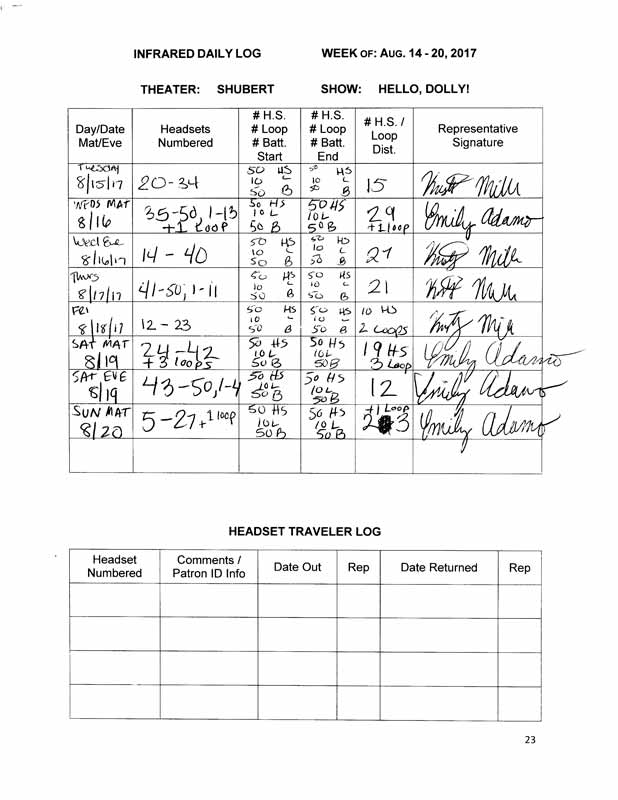 INFRARED DAILY LOG WEEK OF: AUG. 14 - 20, 2017
THEATER: SHUBERT SHOW: HELLO, DOLLY!
Day/Date Mat/Eve Headsets Numbered # H.S. # Loop # Batt. Start # H.S. # Loop # Batt. End # H.S. / Loop Dist. Representative Signature
TUESDAY 8/15/17 20-34 50 HS 10 L 50 B 50 HS 10 L 50 B 15
WEDS MAT 8/16 35-50, 1-13 +1 LOOP 50 HS 10 L 50 B 50 HS 10 L 50 B 29 +1 loop Emily Adamo
Wed Eve 8/16/17 14 - 40 50 HS 10 L 50 B 50 HS 10 L 50 B 27
Thurs 8/17/17 41-50, 1-11 50 HS 10 L 50 B 50 HS 10 L 50 B 21
FRI 8/18/17 12 - 23 50 HS 10 L 50 B 50 HS 10 L 50 B 10 HS 2 Loops
SAT MAT 8/19 24-42 +3 loops 50 HS 10 L 50 B 50 HS 10 L 50 B 19 HS 3 Loop Emily Adamo
SAT EVE 8/19 43-50, 1-4 50 HS 10 L 50 B 50 HS 10 L 50 B 12 Emily Adamo
SUN MAT 8/20 5-27 +1 loop 50 HS 10 L 50 B 50 HS 10 L 50 B +1 Loop 23 Emily Adamo
HEADSET TRAVELER LOG
Headset Numbered Comments / Patron ID Info Date Out Rep Date Returned Rep
23